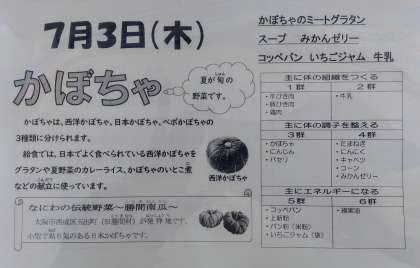 7月3日(木)
かぼちゃのミートグラタン
スープ みかんゼリー
コッペパン いちごジャム 牛乳
かぼちゃ
夏が旬の
野菜です。
かぼちゃは、西洋かぼちゃ、日本かぼちゃ、ペポかぼちゃの
3種類に分けられます。
給食では、日本でよく食べられている西洋かぼちゃを
グラタンや夏野菜のカレーライス、かぼちゃのいとこ煮
などの献立に使っています。
西洋かぼちゃ
なにわの伝統野菜~勝間南瓜~
大阪市西成区玉出町(旧勝間村)が発祥地です。
小型で粘り気のある日本かぼちゃです。
主に体の組織をつくる
1群 2群
・牛ひき肉 ・牛乳
・豚ひき肉
・鶏肉
主に体の調子を整える
3群 4群
・かぼちゃ ・たまねぎ
・にんじん ・にんにく
・パセリ ・キャベツ
・コーン
・みかんゼリー
主にエネルギーになる
5群 6群
・コッペパン ・綿実油
・上新粉
・パン粉(米粉)
・いちごジャム(袋)